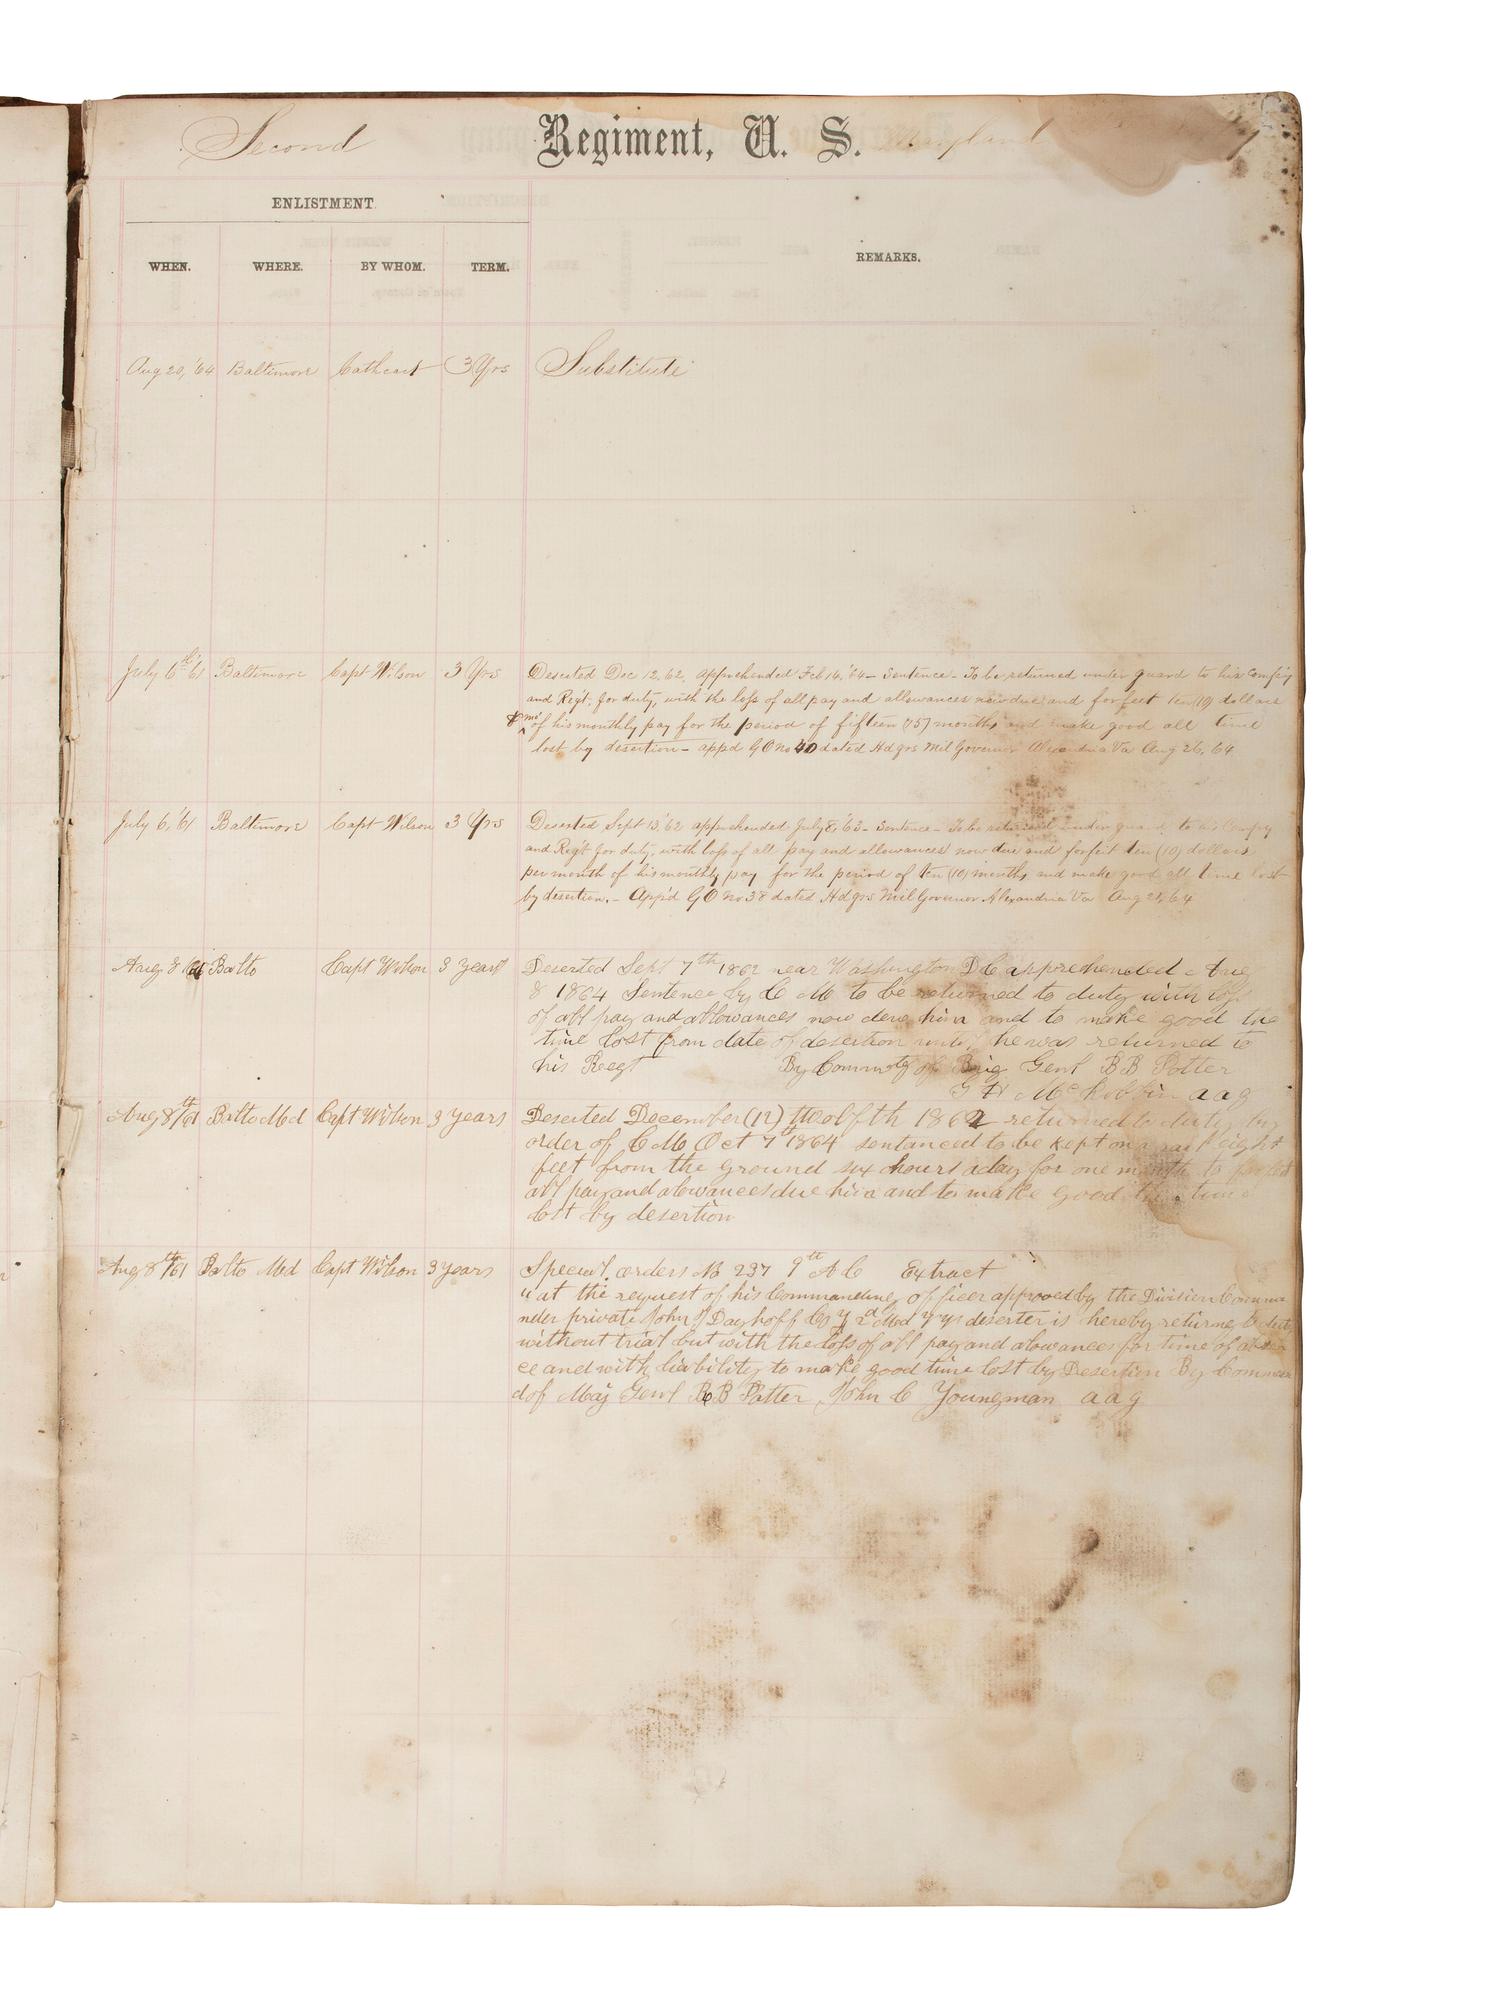 Second Regiment, U. S. Maryland
ENLISTMENT.
WHEN. WHERE. BY WHOM. TERM. REMARKS.
Aug 20, '64 Baltimore Cathcart 3 Yrs Substitute
July 6th '61 Baltimore Capt Wilson 3 Yrs Deserted Dec 12, 62, apprehended Feb 16, '64 - Sentence - To be returned under guard to his Compy
and Regt. for duty, with the loss of all pay and allowances now due and forfeit ten (10) dollars
of his monthly pay for the period of fifteen (15) months and make good all time
lost by desertion - appd G O No 40 dated Hdqrs Mil Governor Alexandria Va Aug 26, 64.
July 6, '61 Baltimore Capt Wilson 3 Yrs Deserted Sept 13, '62 apprehended July 8, '63 - Sentence - To be returned under guard to his Compy
and Regt for duty, with loss of all pay and allowances now due and forfeit ten (10) dollars
per month of his monthly pay for the period of ten (10) months and make good all time lost
by desertion. - App'd G O No 38 dated Hdqrs Mil Governor Alexandria Va Aug 25, 64
Aug 8 Balto Capt Wilson 3 years Deserted Sept 7th 1862 near Washington D C apprehended Aug
8 1864 Sentence by C M to be returned to duty with loss
of all pay and allowances now due him and to make good the
time lost from date of desertion until he was returned to
his Regt By Command of Brig Genl B B Potter
G H McKibbin a a g
Aug 8th/61 Balto Md Capt Wilson 3 years Deserted December (12) twolfth 1862 returned to duty by
order of C M Oct 7th 1864 sentanced to be kept on a eight
feet from the ground six hours aday for one month to forfeit
all pay and alowances due him and to make good the time
lost by desertion
Aug 8th/61 Balto Md Capt Wilson 3 years Special orders No 237 9th A C Extract
at the request of his Commanding officer approved by the Division Comma
nder private John Dayhoff Co 2d Md deserter is hereby returned to duty
without trial but with the loss of all pay and alowances for time of absen
ce and with liability to make good time lost by Desertion By Comman
d of Maj Genl B B Potter John C Youngman a a g